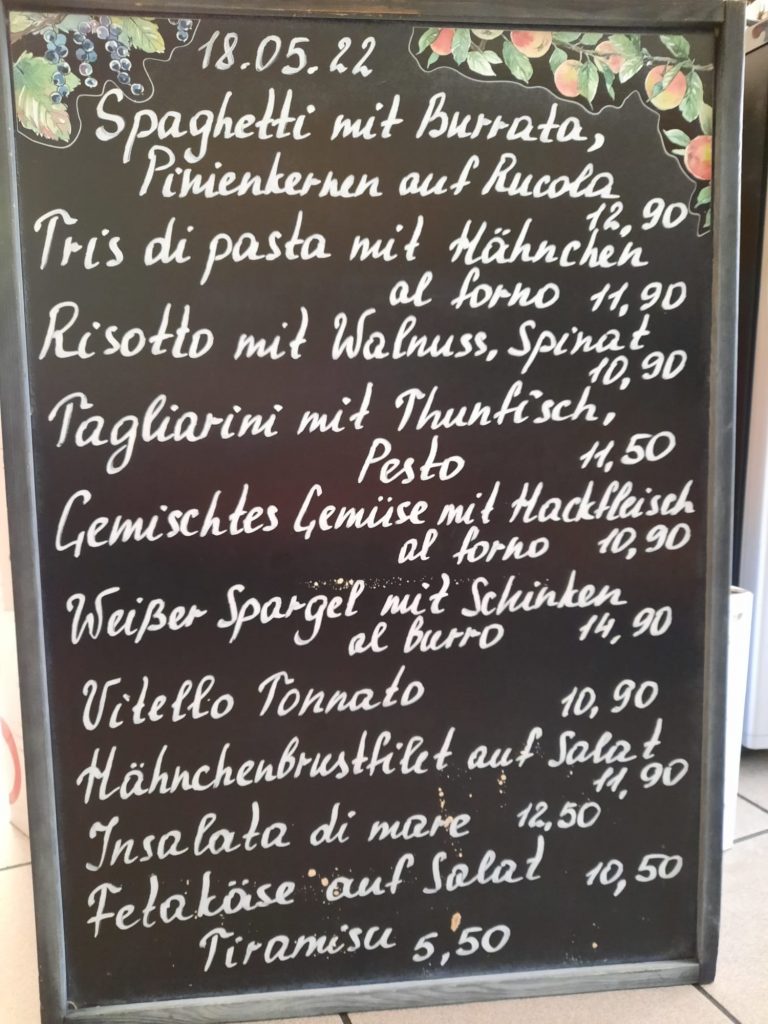 18.05.22
Spaghetti mit Burrata,
Pinienkernen auf Rucola
12,90
Tris di pasta mit Hähnchen
al forno 11,90
Risotto mit Walnuss, Spinat
10,90
Tagliarini mit Thunfisch,
Pesto 11,50
Gemischtes Gemüse mit Hackfleisch
al forno 10,90
Weißer Spargel mit Schinken
al burro 14,90
Vitello Tonnato 10,90
Hähnchenbrustfilet auf Salat
11,90
Insalata di mare 12,50
Fetakäse auf Salat 10,50
Tiramisu 5,50